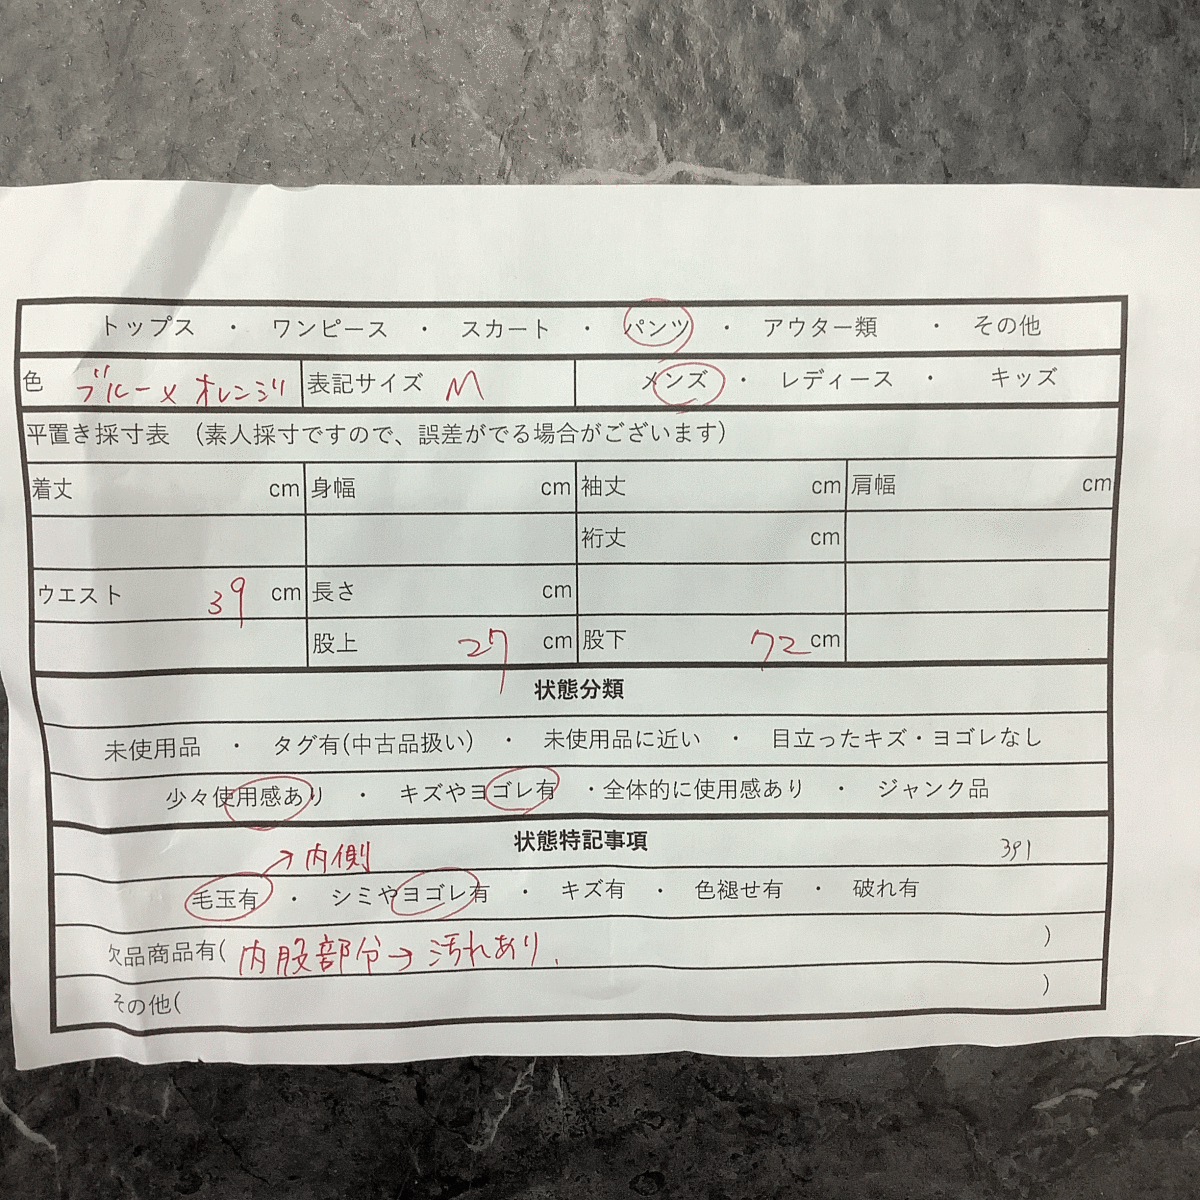 トップス ・ ワンピース ・ スカート ・ パンツ ・ アウター類 ・ その他
色 ブルー×オレンジ 表記サイズ M メンズ ・ レディース ・ キッズ
平置き採寸表 (素人採寸ですので、誤差がでる場合がございます)
着丈 cm 身幅 cm 袖丈 cm 肩幅 cm
裄丈 cm
ウエスト 39 cm 長さ cm
股上 27 cm 股下 72 cm
状態分類
未使用品 ・ タグ有(中古品扱い) ・ 未使用品に近い ・ 目立ったキズ・ヨゴレなし
少々使用感あり ・ キズやヨゴレ有 ・全体的に使用感あり ・ ジャンク品
状態特記事項 391
→内側
毛玉有 ・ シミやヨゴレ有 ・ キズ有 ・ 色褪せ有 ・ 破れ有
欠品商品有( 内股部分→汚れあり. )
その他( )